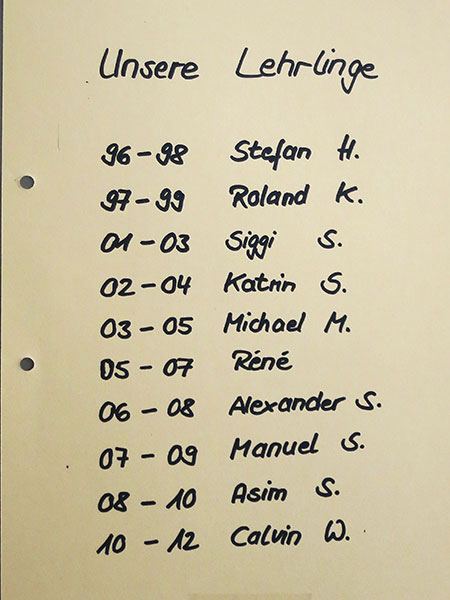 Unsere Lehrlinge
96 - 98 Stefan H.
97 - 99 Roland K.
01 - 03 Siggi S.
02 - 04 Katrin S.
03 - 05 Michael M.
05 - 07 Réné
06 - 08 Alexander S.
07 - 09 Manuel S.
08 - 10 Asim S.
10 - 12 Calvin W.